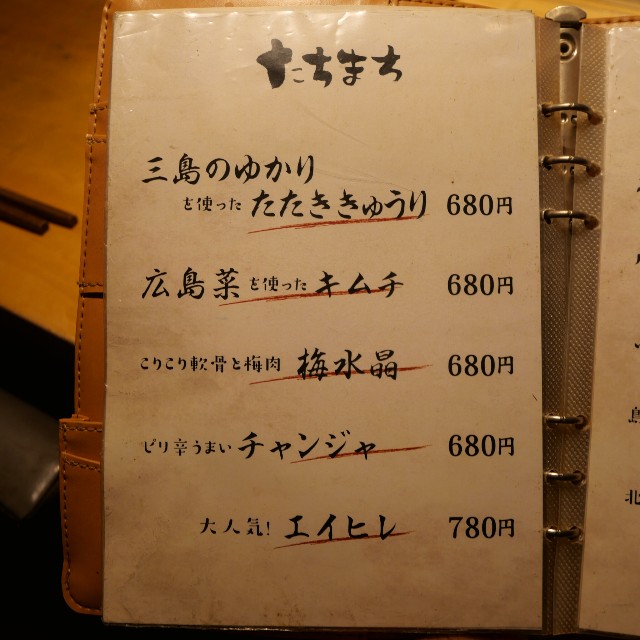 たちまち
三島のゆかり
を使った たたききゅうり 680円
広島菜を使った キムチ 680円
こりこり軟骨と梅肉 梅水晶 680円
ピリ辛うまい チャンジャ 680円
大人気! エイヒレ 780円
島
北